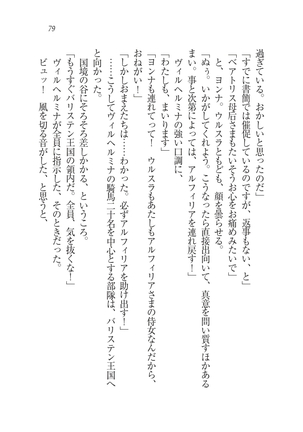 79
過ぎている。おかしいと思ったのだ」
「すでに書簡では催促しているのですが、返事もないし」
「ベアトリス母后さまもたいそうお心をお痛めみたいで」
と、ヨンナ、ウルスラともども、顔を曇らせる。
「ぬぅ。いかがしてくれよう。こうなったら直接出向いて、真意を問い質すほかある
まい。事と次第によっては、アルフィリアを連れ戻す！」
「わたしも、まいります」
ヴィルヘルミナの強い口調に、
「ヨンナも連れてって！　ウルスラもあたしもアルフィリアさまの侍女なんだから、
おねがい！」
「しかしおまえたちは……わかった。必ずアルフィリアを助け出す！」
……こうしてヴィルヘルミナの騎馬二十名を中心とする部隊は、バリステン王国へ
と向かった。
国境の谷にそろそろ差しかかる、というころ。
「もうすぐバリステン王国の領内だ。全員、気を抜くな！」
ヴィルヘルミナが全員に指示した、そのときだった。
ビュッ！　風を切る音がした、と思うと、